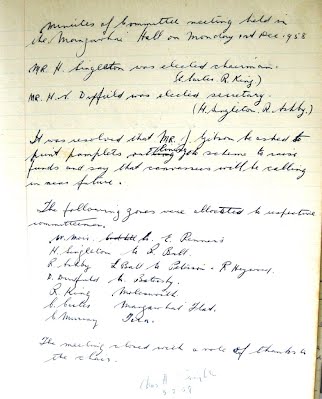 Minutes of Committee meeting held in
the Mangawhai Hall on Monday 1st Dec. 1958
MR. H. Singleton was elected chairman.
(R. King)
MR. H. Duffield was elected secretary.
(H. Singleton. R. Ashby.)
It was resolved that MR. J. be asked to
print pamplets scheme to raise
funds and say that canvassers will be calling
in near future.
The following zones were allocated to respective
committeemen.
W. Moir. to E. Renners
H. Singleton to L. Ball.
R. Ashby L. Ball to R. Haywood.
D. Duffield to
R. King Molesworth
Mangawhai Flat.
C. Murray Tara.
The meeting closed with a vote of thanks to
the chair.